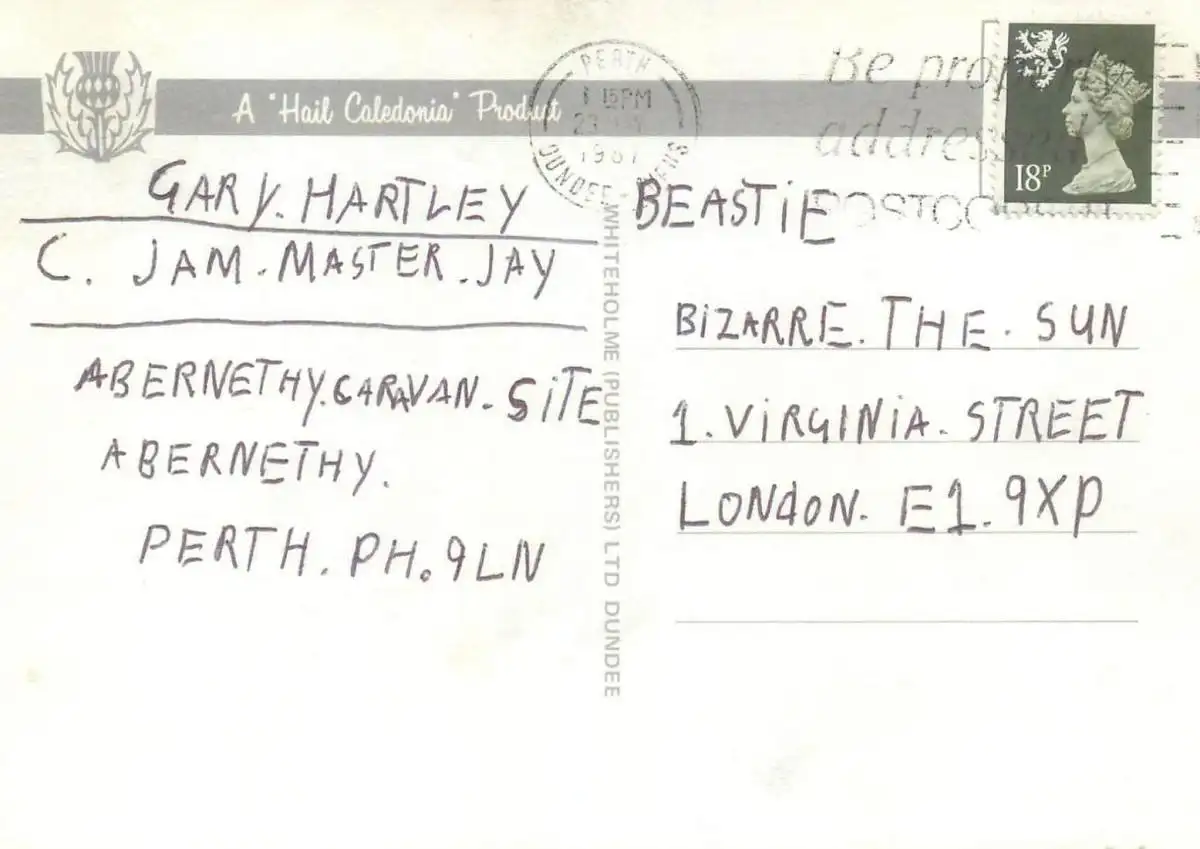 A "Hail Caledonia" Product
PERTH
1 15PM
23
1987
DUNDEE
Be properly
addressed
POSTCODE IT
18P
GARY. HARTLEY
C. JAM. MASTER. JAY
ABERNETHY. CARAVAN. SITE
ABERNETHY.
PERTH. PH. 9LN
WHITEHOLME (PUBLISHERS) LTD DUNDEE
BEASTiE
BiZARRE. THE. SUN
1. ViRGiNiA. STREET
LONdON. E1. 9XP